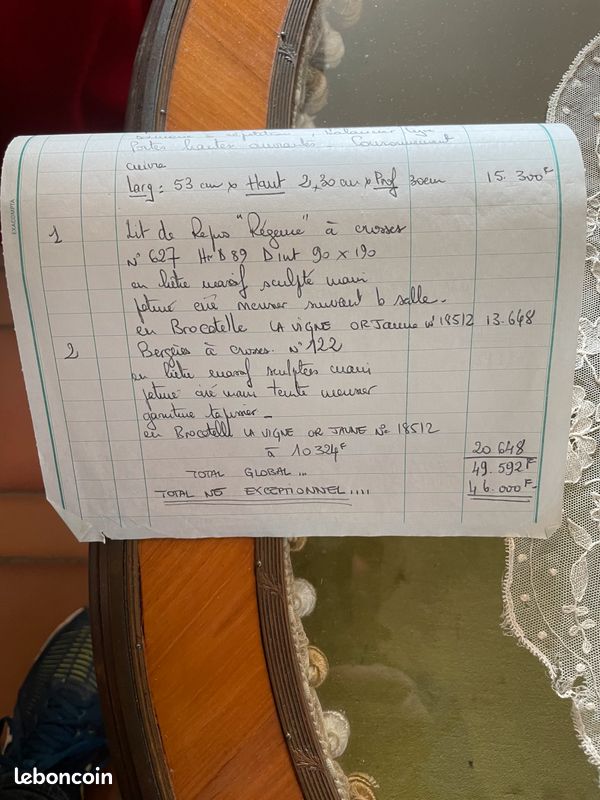 Portes hautes ouvrantes. Couronnement
cuivre
Larg: 53 cm x Haut 2,30 cm x Prof 30cm 15.300F
1 Lit de Repos "Régence" à crosses
N° 627 Hr D 89 D int 90 x 190
en hêtre massif sculpté main
patiné ciré suivant salle.
en Brocatelle LA VIGNE OR Jaune N° 18512 13.648
2 Bergères à crosses. N° 122
en hêtre massif sculptées main
patiné ciré main teinte
garniture
en Brocatelle LA VIGNE OR JAUNE No 18512
à 10324F 20 648
TOTAL GLOBAL... 49.592F
TOTAL NET EXCEPTIONNEL.... 46.000F-
EXACOMPTA
leboncoin